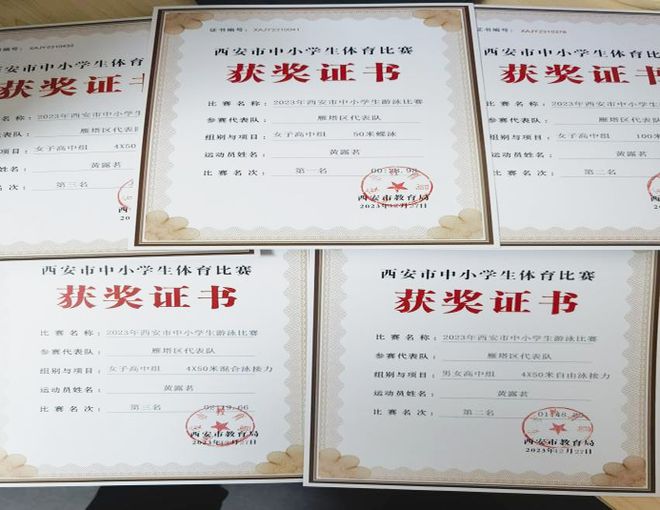 证书编号: XAJY2310433
获奖证书
比赛名称: 2023年西安市中小学
雁塔区代表队
女子高中组 4X50
黄露茗
比赛名次: 第三名
西安
证书编号: XAJY2310041
西安市中小学生体育比赛
获奖证书
比赛名称: 2023年西安市中小学生游泳比赛
参赛代表队: 雁塔区代表队
组别与项目: 女子高中组 50米蝶泳
运动员姓名: 黄露茗
比赛名次: 第一名 00:28.98
西安市教育局
2023年12月27日
证书编号:
西安市中小学生体育比
获奖证书
比赛名称: 2023年西安市中小学生游泳比
参赛代表队: 雁塔区代表队
组别与项目: 女子高中组 100米
运动员姓名: 黄露茗
比赛名次: 第二名
西安市教
西安市中小学生体育比赛
获奖证书
比赛名称: 2023年西安市中小学生游泳比赛
参赛代表队: 雁塔区代表队
组别与项目: 女子高中组 4X50米混合泳接力
运动员姓名: 黄露茗
比赛名次: 第三名
西安市教育局
2023年12月27日
西安市中小学生体育比赛
获奖证书
比赛名称: 2023年西安市中小学生游泳比赛
参赛代表队: 雁塔区代表队
组别与项目: 男女高中组 4X50米自由泳接力
运动员姓名: 黄露茗
比赛名次: 第二名
西安市教育局
2023年12月27日